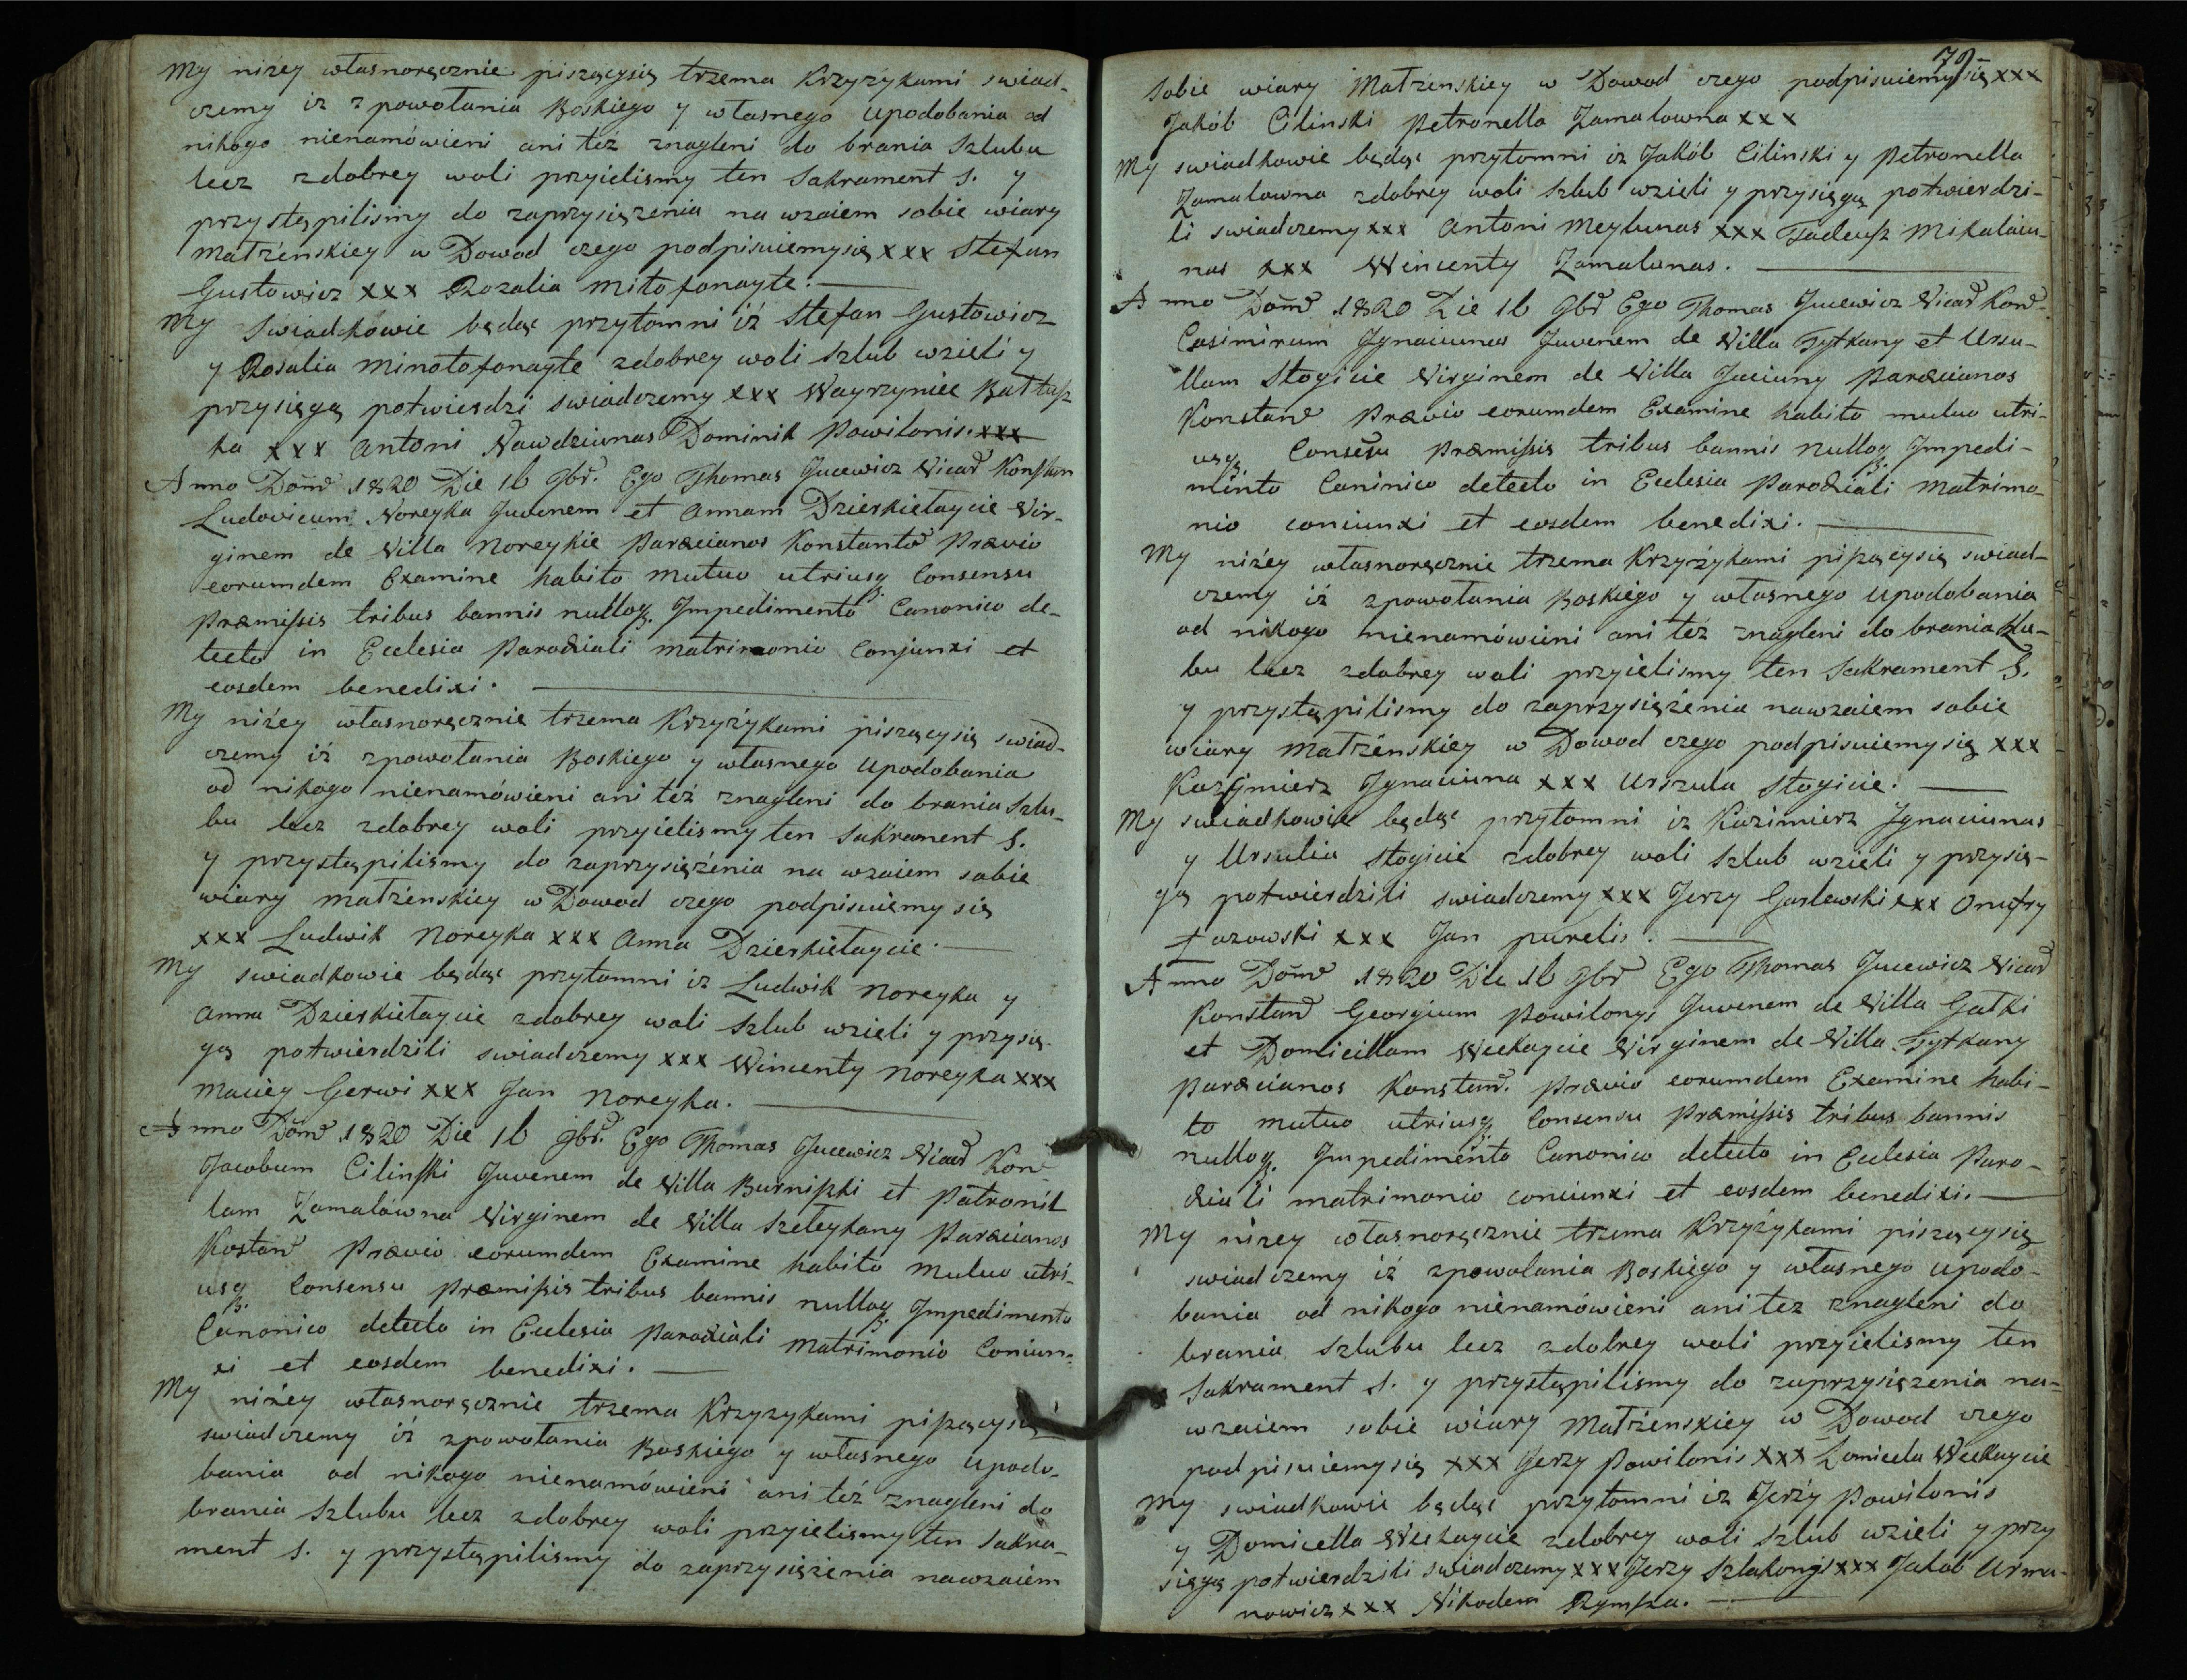 My nizey własnoręcznie piszącysię trzema Krzyżykami swiad-
czemy iz z powołania Boskiego y własnego upodobania od
nikogo nienamówieni ani też znagleni do brania Szlubu
lecz zdobrey woli przyielismy ten Sakrament S. y
przystąpilismy do zaprzysięzenia na wzaiem sobie wiary
Matżenskiey w Dowod czego podpisuiemysię xxx Stefan
Gustowicz xxx Rozalia Mitofonayte.
My Swiadkowie będąc przytomni iż Stefan Gustowicz
y Rosalia Minotofonayte zdobrey woli Szlub wzieli y
przysięgą potwierdzi swiadczemy xxx Wawrzyniec Baltusz
ka xxx Antoni Nawdziunas Dominik Powilonis. xxx
Anno Domd 1820 Die 16 9br. Ego Thomas Jucewicz Vicard Konstan
Ludovicum Noreyka Juvenem et Annam Dzierkietaycie Vir-
ginem de Villa Noreykie Paræcianos Konstantd Prævio
eorumdem Examine habito mutuo utriusq. Consensu
Præmissis tribus bannis nulloq. Impedimento Canonico de-
tecto in Ecclesia Parochiali matrimonio Conjunxi et
eosdem benedixi.
My niżey własnoręcznie trzema Krzyżykami piszącysię swiad-
czemy iż zpowołania Boskiego y własnego upodobania
od nikogo nienamówieni ani też znagleni do brania Szlu-
bu lecz zdobrey woli przyielismy ten Sakrament S.
y przystąpilismy do zaprzysiężenia na wzaiem sobie
wiary matżenskiey w Dowod czego podpisuiemy się
xxx Ludwik Noreyka xxx Anna Dzierkietaycie.
My swiadkowie będąc przytomni iz Ludwik Noreyka y
Anna Dzierkietaycie zdobrey woli Szlub wzieli y przysię
gą potwierdzili swiadczemy xxx Wincenty Noreyka xxx
Maciey Gerwi xxx Jan Noreyka.
Anno Domd 1820 Die 16 9br. Ego Thomas Jucewicz Vicard Kond
Jacobum Cilinski Juvenem de Villa Burniszki et Patronil
lam Zamalówna Virginem de Villa Szeteykany Paræcianos
Kostand Prævio eorumdem Examine habito mutuo utri-
usq. Consensu Præmissis tribus bannis nulloq. Impedimento
Canonico detecto in Ecclesia Parochiali Matrimonio Coniun-
xi et eosdem benedixi.
My niżey własnoręcznie trzema Krzyzykami piszącysię
swiadczemy iż zpowołania Boskiego y własnego upodo-
bania od nikogo nienamówieni ani też znagleni do
brania Szlubu lecz zdobrey woli przyielismy ten Sakra-
ment S. y przystąpilismy do zaprzysiężenia nawzaiem
79
sobie wiary Matżenskiey w Dowod czego podpisuiemy się xxx
Jakób Cilinski Petronella Zamalowna xxx
My swiadkowie będąc przytomni iz Jakób Cilinski y Petronella
Zamalowna zdobrey woli Szlub wzieli y przysięgą potwierdzi-
li swiadczemy xxx Antoni Meylunas xxx Tadeusz Mikalaiu-
nas xxx Wincenty Zamalunas.
Anno Domd 1820 Die 16 9br Ego Thomas Jucewicz Vicard Kond
Casimirum Jgnaciunas Juvenem de Villa Tytkany et Ursu-
llam Stogicie Virginem de Villa Juciuny Paræcianos
Konstand Prævio eorumdem Examine habito mutuo utri-
usq. Consesu Præmissis tribus bannis nulloq. Impedi-
minto Caninico detecto in Ecclesia Parochiali matrimo-
nio coniunxi et eosdem benedixi.
My niżey własnoręcznie trzema Krzyżykami piszącysię swiad-
czemy iż zpowołania Boskiego y własnego upodobania
od nikogo nienamówieni ani też znagleni do brania Szlu-
bu lecz zdobrey woli przyielismy ten Sakrament S.
y przystąpilismy do zaprzysiężenia nawzaiem sobie
wiary matżenskiey w Dowod czego podpisuiemy się xxx
Kazymierz Jgnaciuna xxx Urszula Stogicie.
My swiadkowie będąc przytomni iz Kazimierz Jgnaciunas
y Ursulia Stogicie zdobrey woli Szlub wzieli y przysię-
gą potwierdzili swiadczemy xxx Jerzy Gaslewski xxx Onufry
Łazowski xxx Jan purelis.
Anno Domd 1820 Die 16 9br Ego Thomas Jucewicz Vicard
Konstand Georgium Powilonys Juvenem de Villa Gatki
et Domicillam Weckaycie Virginem de Villa Tytkany
Paræcianos Konstand. Prævio eorumdem Examine habi-
to mutuo utriusq. Consensu Præmissis tribus bannis
nulloq. Impedimento Canonico detecto in Ecclesia Paro-
chiali matrimonio coniunxi et eosdem benedixi.
My nizey własnoręcznie trzema Krzyżykami piszącysię
swiadczemy iż zpowolania Boskiego y własnego upodo-
bania od nikogo nienamówieni ani tez znagleni do
brania Szlubu lecz zdobrey woli przyielismy ten
Sakrament S. y przystąpilismy do zaprzysięzenia na-
wzaiem sobie wiary Matżenskiey w Dowod czego
podpisuiemysię xxx Jerzy Powilonis xxx Domicela Weckaycie
My swiadkowie będąc przytomni iz Jerży Powilonis
y Domicella Weckaycie zdobrey woli Szlub wzieli y przy
sięgą potwierdzili swiadczemy xxx Jerzy Szlakonys xxx Jakób Urma-
nowicz xxx Nikodem Rymsza.